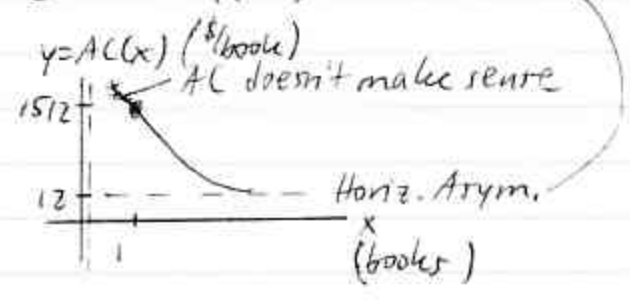 y=AC(x) ($/book)
AC doesn't make sense
1512
12
Horiz. Asym.
1
x
(books)